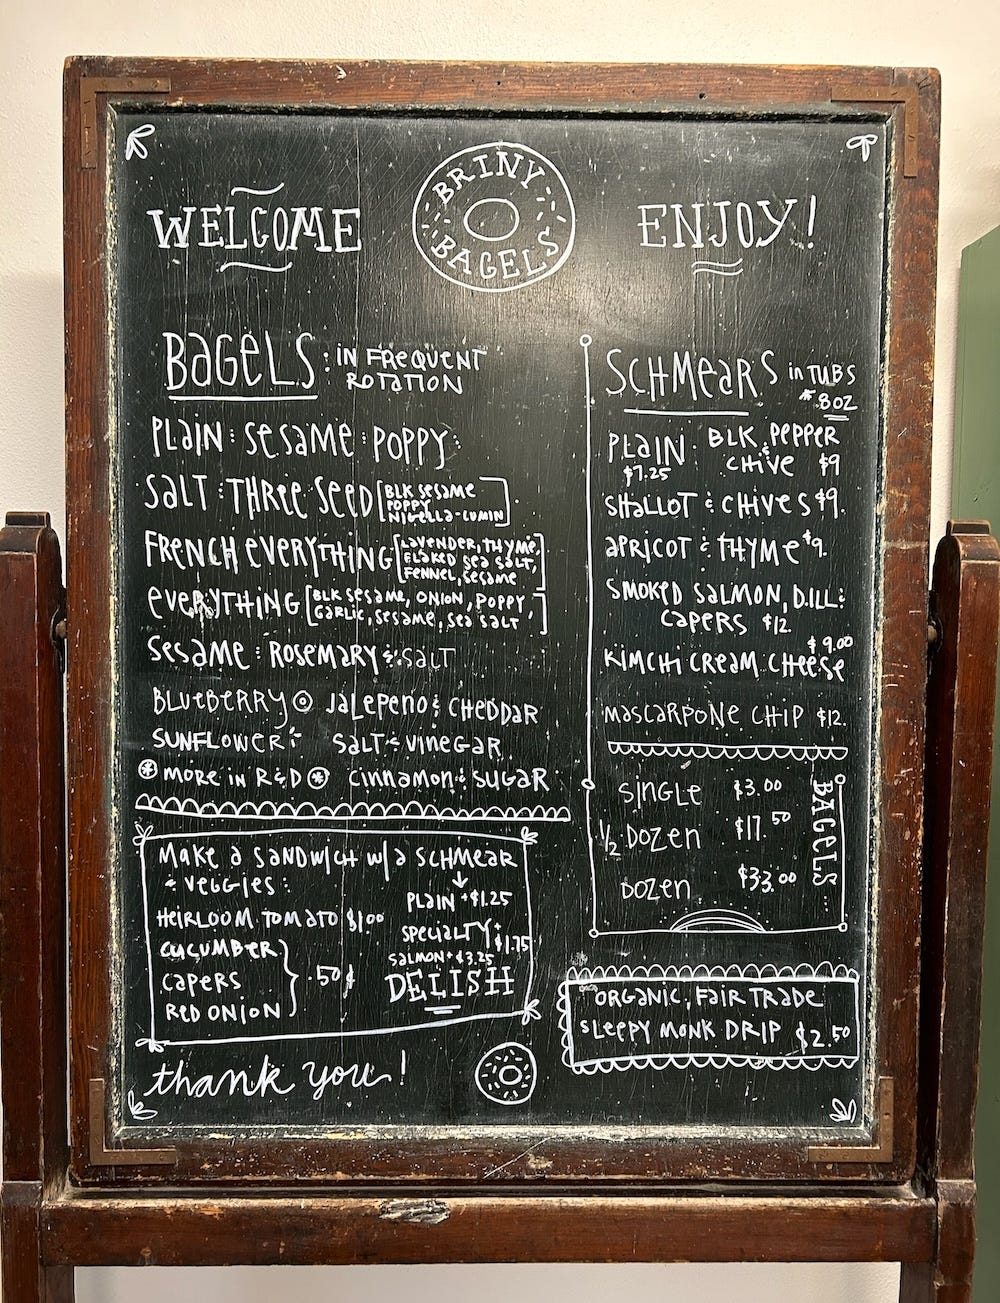 WELCOME
BRINY
BAGELS
ENJOY!
BAGELS: IN FREQUENT
ROTATION
PLAIN : SESAME : POPPY :
SALT : THREE SEED [BLK SESAME
POPPY
NIGELLA-CUMIN]
FRENCH EVERYTHING [LAVENDER, THYME,
FLAKED SEA SALT,
FENNEL, SESAME]
EVERYTHING [BLK SESAME, ONION, POPPY,
GARLIC, SESAME, SEA SALT]
SESAME : ROSEMARY & SALT
BLUEBERRY JALEPENO & CHEDDAR
SUNFLOWER : SALT & VINEGAR
MORE IN R&D CINNAMON & SUGAR
MAKE A SANDWICH W/A SCHMEAR
& VEGGIES :
PLAIN + $1.25
HEIRLOOM TOMATO $1.00
SPECIALTY + $1.75
CUCUMBER
SALMON + $3.25
CAPERS .50¢
DELISH
RED ONION
thank you!
SCHMEARS in TUBS
* 8OZ
PLAIN $7.25
BLK PEPPER
& CHIVE $9
SHALLOT & CHIVES $9.
APRICOT & THYME $9.
SMOKED SALMON, DILL &
CAPERS $12
$9.00
KIMCHI CREAM CHEESE
MASCARPONE CHIP $12.
BAGELS
SINGLE $3.00
1/2 DOZEN $17.50
DOZEN $33.00
ORGANIC, FAIR TRADE
SLEEPY MONK DRIP $2.50